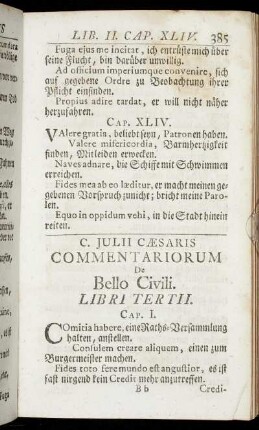 LIB. II. CAP. XLIV. 385
Fuga ejus me incitat, ich entrüste mich über
seine Flucht, bin darüber unwillig.
Ad officium imperiumque convenire, sich
auf gegebene Ordre zu Beobachtung ihrer
Pflicht einfinden.
Propius adire tardat, er will nicht näher
herzufahren.
CAP. XLIV.
VAlere gratia, beliebt seyn, Patronen haben.
Valere misericordia, Barmhertzigkeit
finden, Mitleiden erwecken.
Naves adnare, die Schiffe mit Schwimmen
erreichen.
Fides mea ab eo læditur, er macht meinen ge-
gebenen Vorspruch zunicht; bricht meine Paro-
len.
Equo in oppidum vehi, in die Stadt hinein
reiten.
C. JULII CÆSARIS
COMMENTARIORUM
De
Bello Civili.
LIBRI TERTII.
CAP. I.
COmitia habere, eine Raths-Versammlung
halten, anstellen.
Consulem creare aliquem, einen zum
Burgermeister machen.
Fides toto fere mundo est angustior, es ist
fast nirgend kein Credit mehr anzutreffen.
B b Credi-